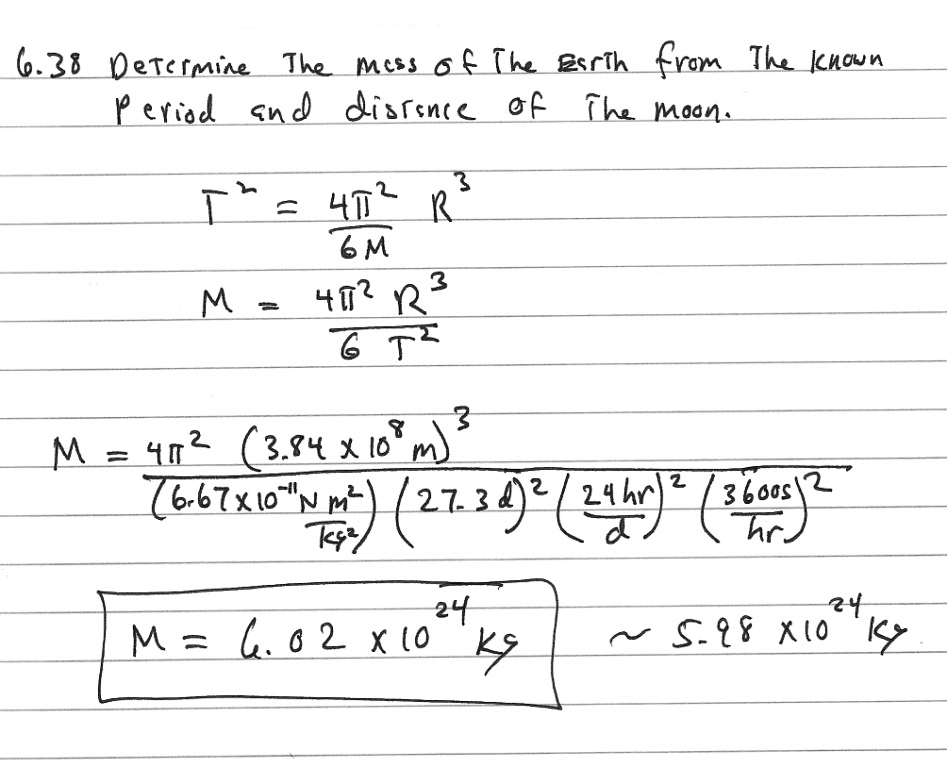 6.38 Determine The mass of The Earth from The known
Period and distance of The moon.
T² = 4π² R³
GM
M = 4π² R³
G T²
M = 4π² (3.84 x 10⁸ m)³
(6.67 x 10⁻¹¹ N m²/kg²) (27.3 d)² (24 hr/d)² (3600s/hr)²
M = 6.02 x 10²⁴ kg ~ 5.98 x 10²⁴ kg